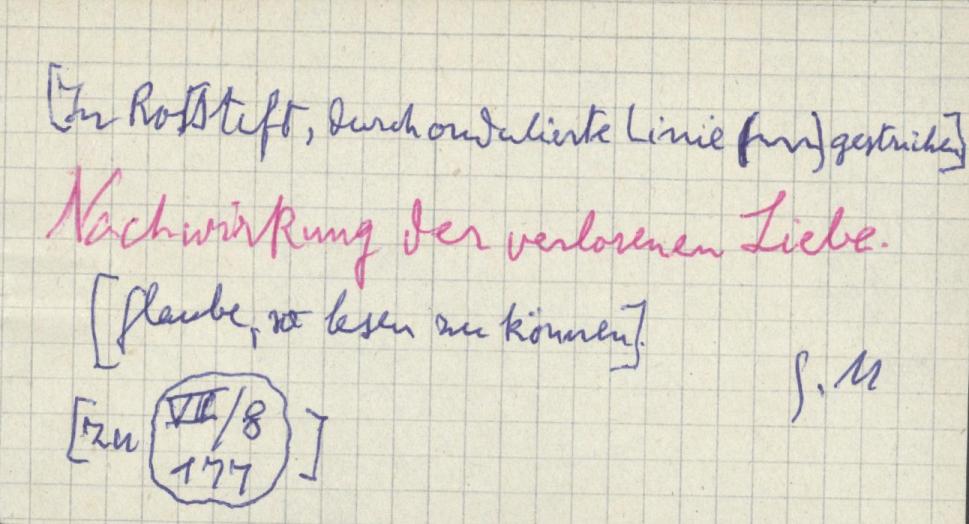 [In Rotstift, durch ondulierte Linie gestrichen]
Nachwirkung der verlorenen Liebe.
[Glaube, so lesen zu können].
S. 11
[zu VII/8
177]